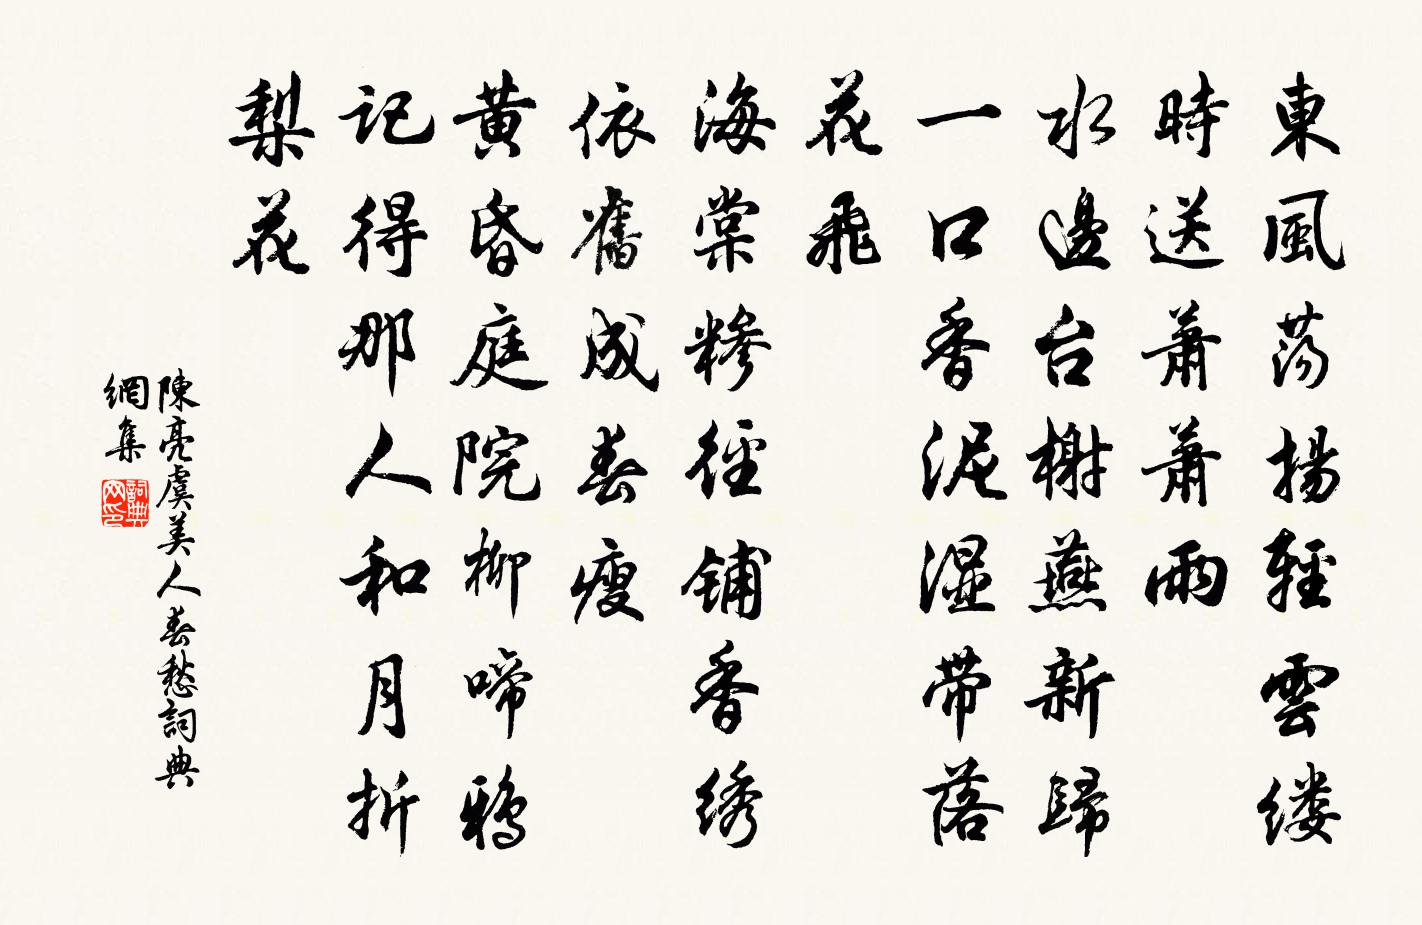 東風荡揚輕雲缕
時送萧萧雨
水邊台榭燕新歸
一口香泥湿带落
花飛
海棠糁徑铺香绣
依舊成春瘦
黄昏庭院柳啼鴉
記得那人和月折
梨花
陳亮虞美人春愁詞典
網集
詞典